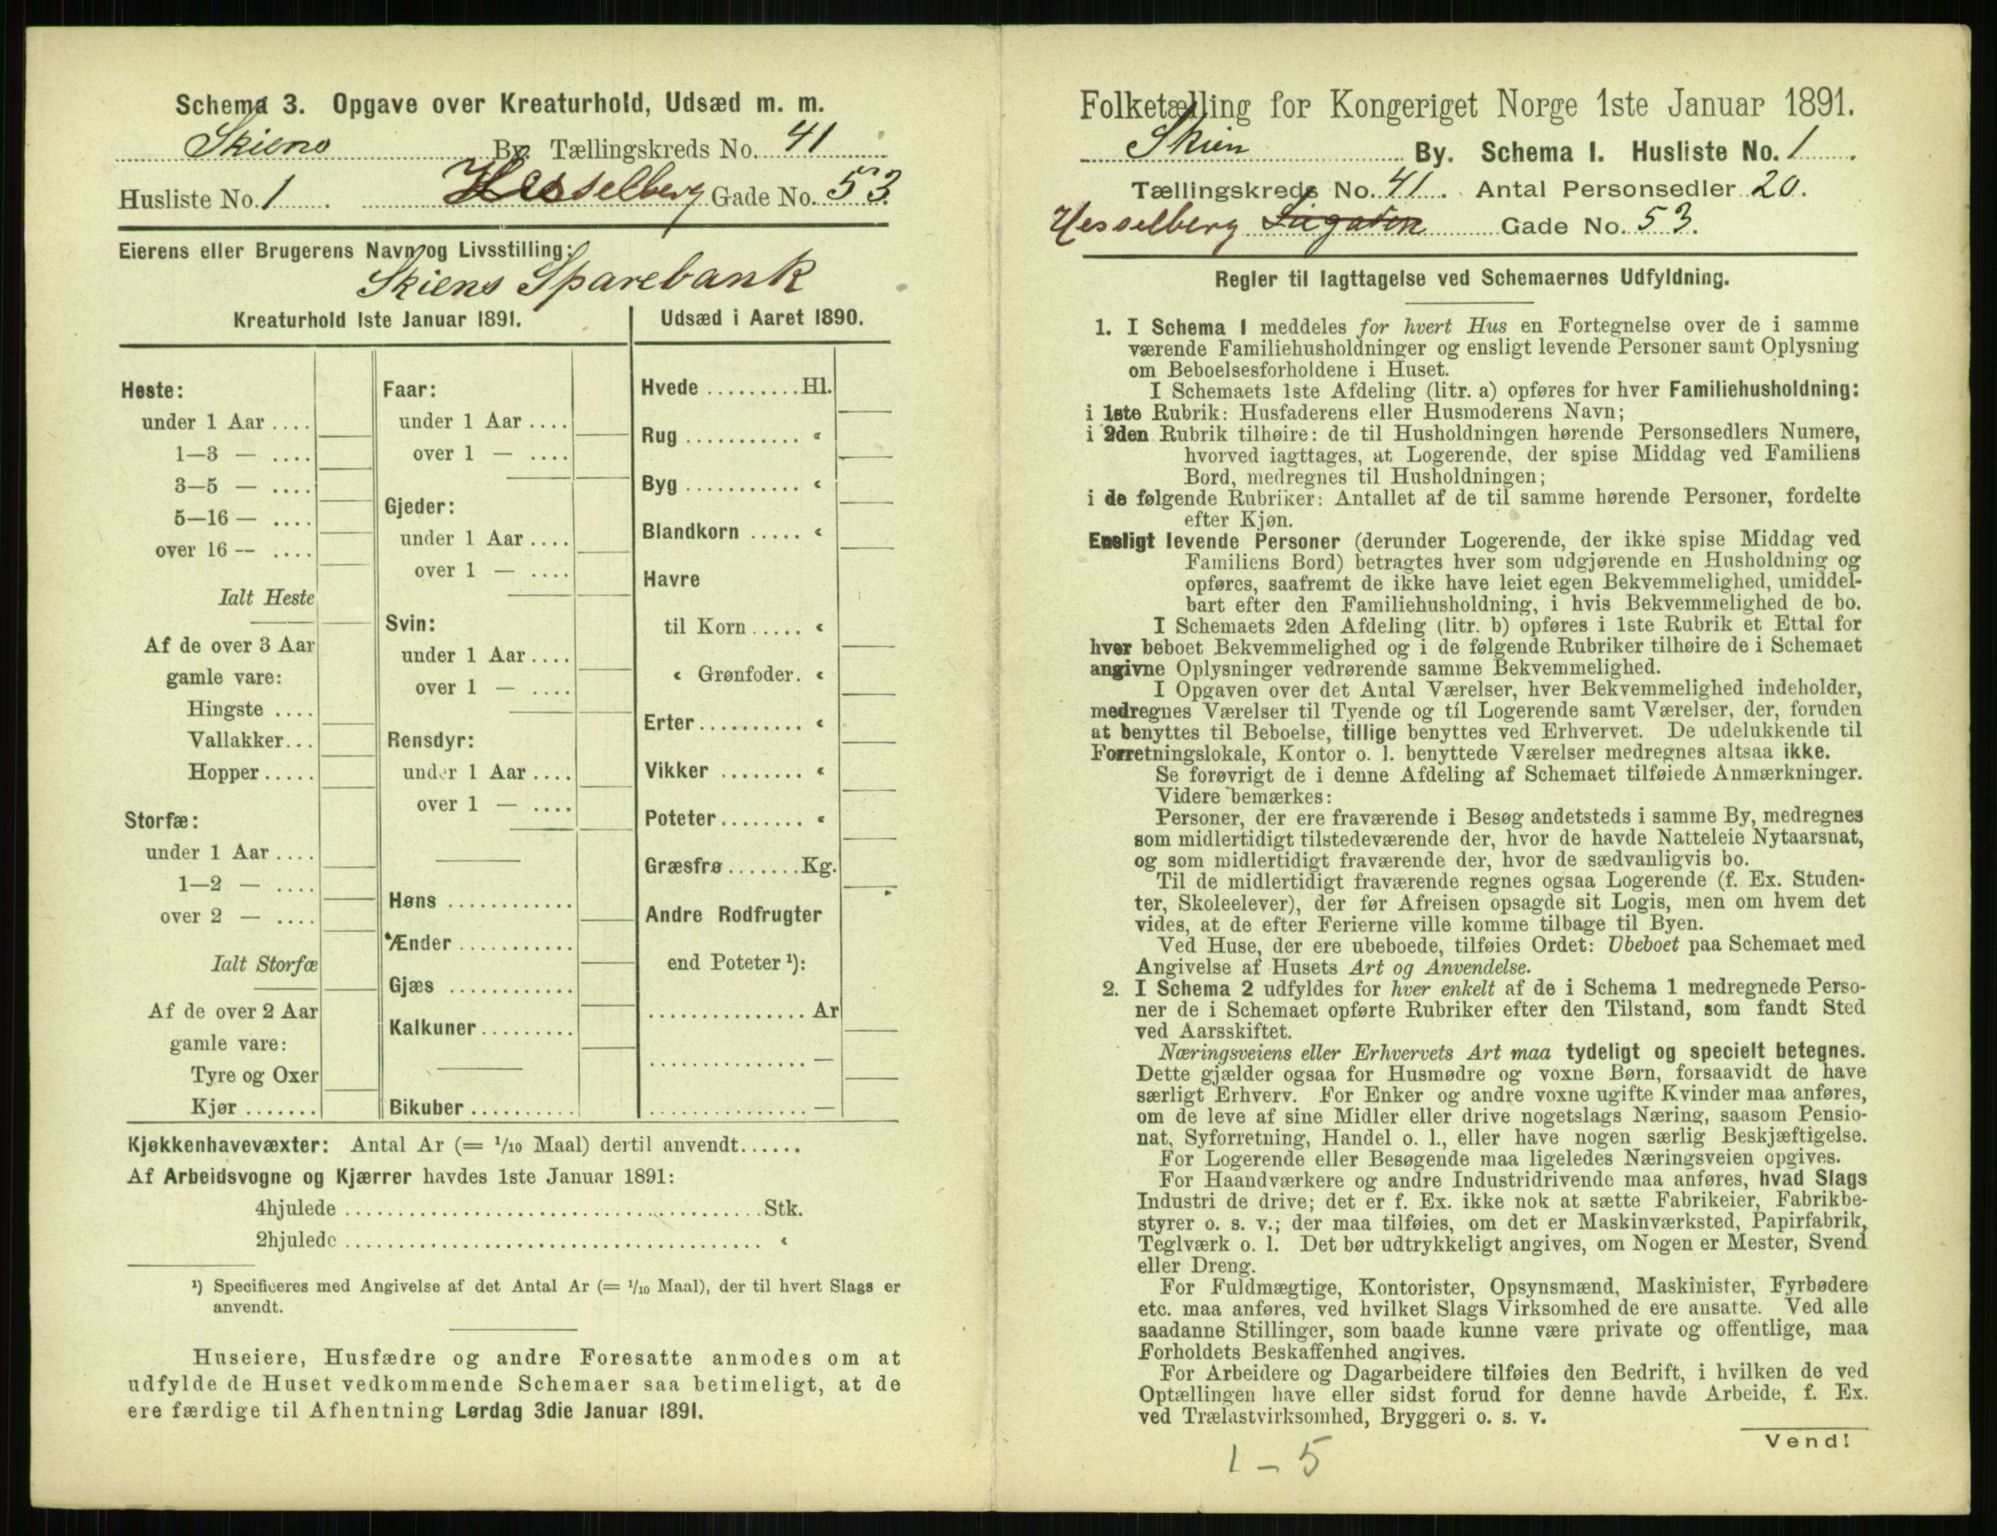 Schema 3. Opgave over Kreaturhold, Udsæd m. m.
Skiens By. Tællingskreds No. 41
Husliste No. 1 Hesselberg Gade No. 53.
Eierens eller Brugerens Navn og Livsstilling:
Skiens Sparebank
Kreaturhold 1ste Januar 1891.
Heste:
under 1 Aar ....
1—3 — ....
3—5 — ....
5—16 — ....
over 16 — ....
Ialt Heste
Af de over 3 Aar
gamle vare:
Hingste ....
Vallakker...
Hopper.....
Storfæ:
under 1 Aar ....
1—2 — ....
over 2 — ....
Ialt Storfæ
Af de over 2 Aar
gamle vare:
Tyre og Oxer
Kjør .......
Faar:
under 1 Aar ....
over 1 — ....
Gjeder:
under 1 Aar ....
over 1 — ....
Svin:
under 1 Aar ....
over 1 — ....
Rensdyr:
under 1 Aar ....
over 1 — ....
Høns ............
Ænder ...........
Gjæs ............
Kalkuner.........
Bikuber ..........
Udsæd i Aaret 1890.
Hvede ......... Hl.
Rug ........... «
Byg ........... «
Blandkorn ..... «
Havre
til Korn ..... «
« Grønfoder. «
Erter.......... «
Vikker ........ «
Poteter........ «
Græsfrø ....... Kg.
Andre Rodfrugter
end Poteter ¹):
............... Ar
............... —
............... —
Kjøkkenhavevæxter: Antal Ar (= 1/10 Maal) dertil anvendt......
Af Arbeidsvogne og Kjærrer havdes 1ste Januar 1891:
4hjulede ........................................ Stk.
2hjulede ........................................ «
¹) Specificeres med Angivelse af det Antal Ar (= 1/10 Maal), der til hvert Slags er
anvendt.
Huseiere, Husfædre og andre Foresatte anmodes om at
udfylde de Huset vedkommende Schemaer saa betimeligt, at de
ere færdige til Afhentning Lørdag 3die Januar 1891.
Folketælling for Kongeriget Norge 1ste Januar 1891.
Skien By. Schema I. Husliste No. 1.
Tællingskreds No. 41. Antal Personsedler 20.
Hesselberg Gade No. 53.
Regler til Iagttagelse ved Schemaernes Udfyldning.
1. I Schema 1 meddeles for hvert Hus en Fortegnelse over de i samme
værende Familiehusholdninger og ensligt levende Personer samt Oplysning
om Beboelsesforholdene i Huset.
I Schemaets 1ste Afdeling (litr. a) opføres for hver Familiehusholdning:
i 1ste Rubrik: Husfaderens eller Husmoderens Navn;
i 2den Rubrik tilhøire: de til Husholdningen hørende Personsedlers Numere,
hvorved iagttages, at Logerende, der spise Middag ved Familiens
Bord, medregnes til Husholdningen;
i de følgende Rubriker: Antallet af de til samme hørende Personer, fordelte
efter Kjøn.
Ensligt levende Personer (derunder Logerende, der ikke spise Middag ved
Familiens Bord) betragtes hver som udgjørende en Husholdning og
opføres, saafremt de ikke have leiet egen Bekvemmelighed, umiddel-
bart efter den Familiehusholdning, i hvis Bekvemmelighed de bo.
I Schemaets 2den Afdeling (litr. b) opføres i 1ste Rubrik et Ettal for
hver beboet Bekvemmelighed og i de følgende Rubriker tilhøire de i Schemaet
angivne Oplysninger vedrørende samme Bekvemmelighed.
I Opgaven over det Antal Værelser, hver Bekvemmelighed indeholder,
medregnes Værelser til Tyende og til Logerende samt Værelser, der, foruden
at benyttes til Beboelse, tillige benyttes ved Erhvervet. De udelukkende til
Forretningslokale, Kontor o. l. benyttede Værelser medregnes altsaa ikke.
Se forøvrigt de i denne Afdeling af Schemaet tilføiede Anmærkninger.
Videre bemærkes:
Personer, der ere fraværende i Besøg andetsteds i samme By, medregnes
som midlertidigt tilstedeværende der, hvor de havde Natteleie Nytaarsnat,
og som midlertidigt fraværende der, hvor de sædvanligvis bo.
Til de midlertidigt fraværende regnes ogsaa Logerende (f. Ex. Studen-
ter, Skoleelever), der før Afreisen opsagde sit Logis, men om hvem det
vides, at de efter Ferierne ville komme tilbage til Byen.
Ved Huse, der ere ubeboede, tilføies Ordet: Ubeboet paa Schemaet med
Angivelse af Husets Art og Anvendelse.
2. I Schema 2 udfyldes for hver enkelt af de i Schema 1 medregnede Perso-
ner de i Schemaet opførte Rubriker efter den Tilstand, som fandt Sted
ved Aarsskiftet.
Næringsveiens eller Erhvervets Art maa tydeligt og specielt betegnes.
Dette gjælder ogsaa for Husmødre og voxne Børn, forsaavidt de have
særligt Erhverv. For Enker og andre voxne ugifte Kvinder maa anføres,
om de leve af sine Midler eller drive nogetslags Næring, saasom Pensio-
nat, Syforretning, Handel o. l., eller have nogen særlig Beskjæftigelse.
For Logerende eller Besøgende maa ligeledes Næringsveien opgives.
For Haandværkere og andre Industridrivende maa anføres, hvad Slags
Industri de drive; det er f. Ex. ikke nok at sætte Fabrikeier, Fabrikbe-
styrer o. s. v.; der maa tilføies, om det er Maskinværksted, Papirfabrik,
Teglværk o. l. Det bør udtrykkeligt angives, om Nogen er Mester, Svend
eller Dreng.
For Fuldmægtige, Kontorister, Opsynsmænd, Maskinister, Fyrbødere
etc. maa anføres, ved hvilket Slags Virksomhed de ere ansatte. Ved alle
saadanne Stillinger, som baade kunne være private og offentlige, maa
Forholdets Beskaffenhed angives.
For Arbeidere og Dagarbeidere tilføies den Bedrift, i hvilken de ved
Optællingen have eller sidst forud for denne havde Arbeide, f. Ex.
ved Trælastvirksomhed, Bryggeri o. s. v.
Vend!
1 - 5